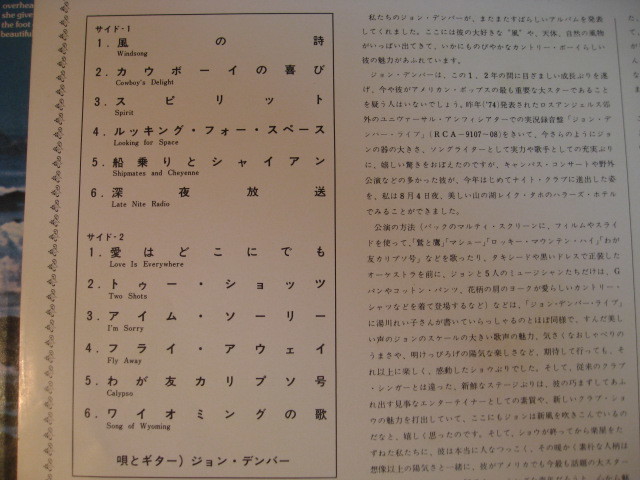 overhea
she give
the foot
beautiful
サイド-1
1. 風の詩
Windsong
2. カウボーイの喜び
Cowboy's Delight
3. スピリット
Spirit
4. ルッキング・フォー・スペース
Looking for Space
5. 船乗りとシャイアン
Shipmates and Cheyenne
6. 深夜放送
Late Nite Radio
サイド-2
1. 愛はどこにでも
Love Is Everywhere
2. トゥー・ショッツ
Two Shots
3. アイム・ソーリー
I'm Sorry
4. フライ・アウェイ
Fly Away
5. わが友カリプソ号
Calypso
6. ワイオミングの歌
Song of Wyoming
唄とギター) ジョン・デンバー
私たちのジョン・デンバーが、またまたすばらしいアルバムを発表
してくれました。ここには彼の大好きな“風”や、天体、自然の風物
がいっぱい出てきて、いかにものびやかなカントリー・ボーイらしい
彼の魅力があふれています。
ジョン・デンバーは、この1、2年の間に目ざましい成長ぶりを遂
げ、今や彼がアメリカン・ポップスの最も重要な大スターであること
を疑う人はいないでしょう。昨年('74)発表されたロスアンジェルス郊
外のユニヴァーサル・アンフィシアターでの実況録音盤「ジョン・デ
ンバー・ライブ」(RCA-9107~08)をきいて、今さらのようにジョ
ンの器の大きさ、ソングライターとして実力や歌手としての充実ぶり
に、嬉しい驚きをおぼえたのですが、キャンパス・コンサートや野外
公演などの多かった彼が、今年はじめてナイト・クラブに進出した姿
を、私は8月4日夜、美しい山の湖レイク・タホのハラーズ・ホテル
でみることができました。
公演の方法(バックのマルティ・スクリーンに、フィルムやスライ
ドを使って、「鷲と鷹」「マシュー」「ロッキー・マウンテン・ハイ」「わが
友カリプソ号」などを歌ったり、タキシードや黒いドレスで正装した
オーケストラを前に、ジョンと5人のミュージシャンたちだけは、G
パンやコットン・パンツ、花柄の肩のヨークが愛らしいカントリー・
シャツなどを着て登場するなど)などは、「ジョン・デンバー・ライブ」
に湯川れい子さんが書いていらっしゃるのとほぼ同様で、すんだ美し
い声のジョンのスケールの大きい歌声の魅力、気さくなおしゃべりの
うまさや、明けっぴろげの陽気な楽しさなど、期待して行っても、そ
れ以上に楽しく、感動したショウぶりでした。そして、従来のクラブ
・シンガーとは違った、新鮮なステージぶりは、彼の巧まずしてあふ
れ出す見事なエンターテイナーとしての素質や、新しいクラブ・ショ
ウの魅力を打出していて、ここにもジョンは新風を吹きこんでいるの
だなと、嬉しく思ったのです。そして、ショウが終ってから楽屋をた
ずねた私たちに、彼は本当に人なつっこく、その暖かく素朴な人柄は
想像以上の陽気さと一緒に、彼がアメリカでも今最も話題の大スター